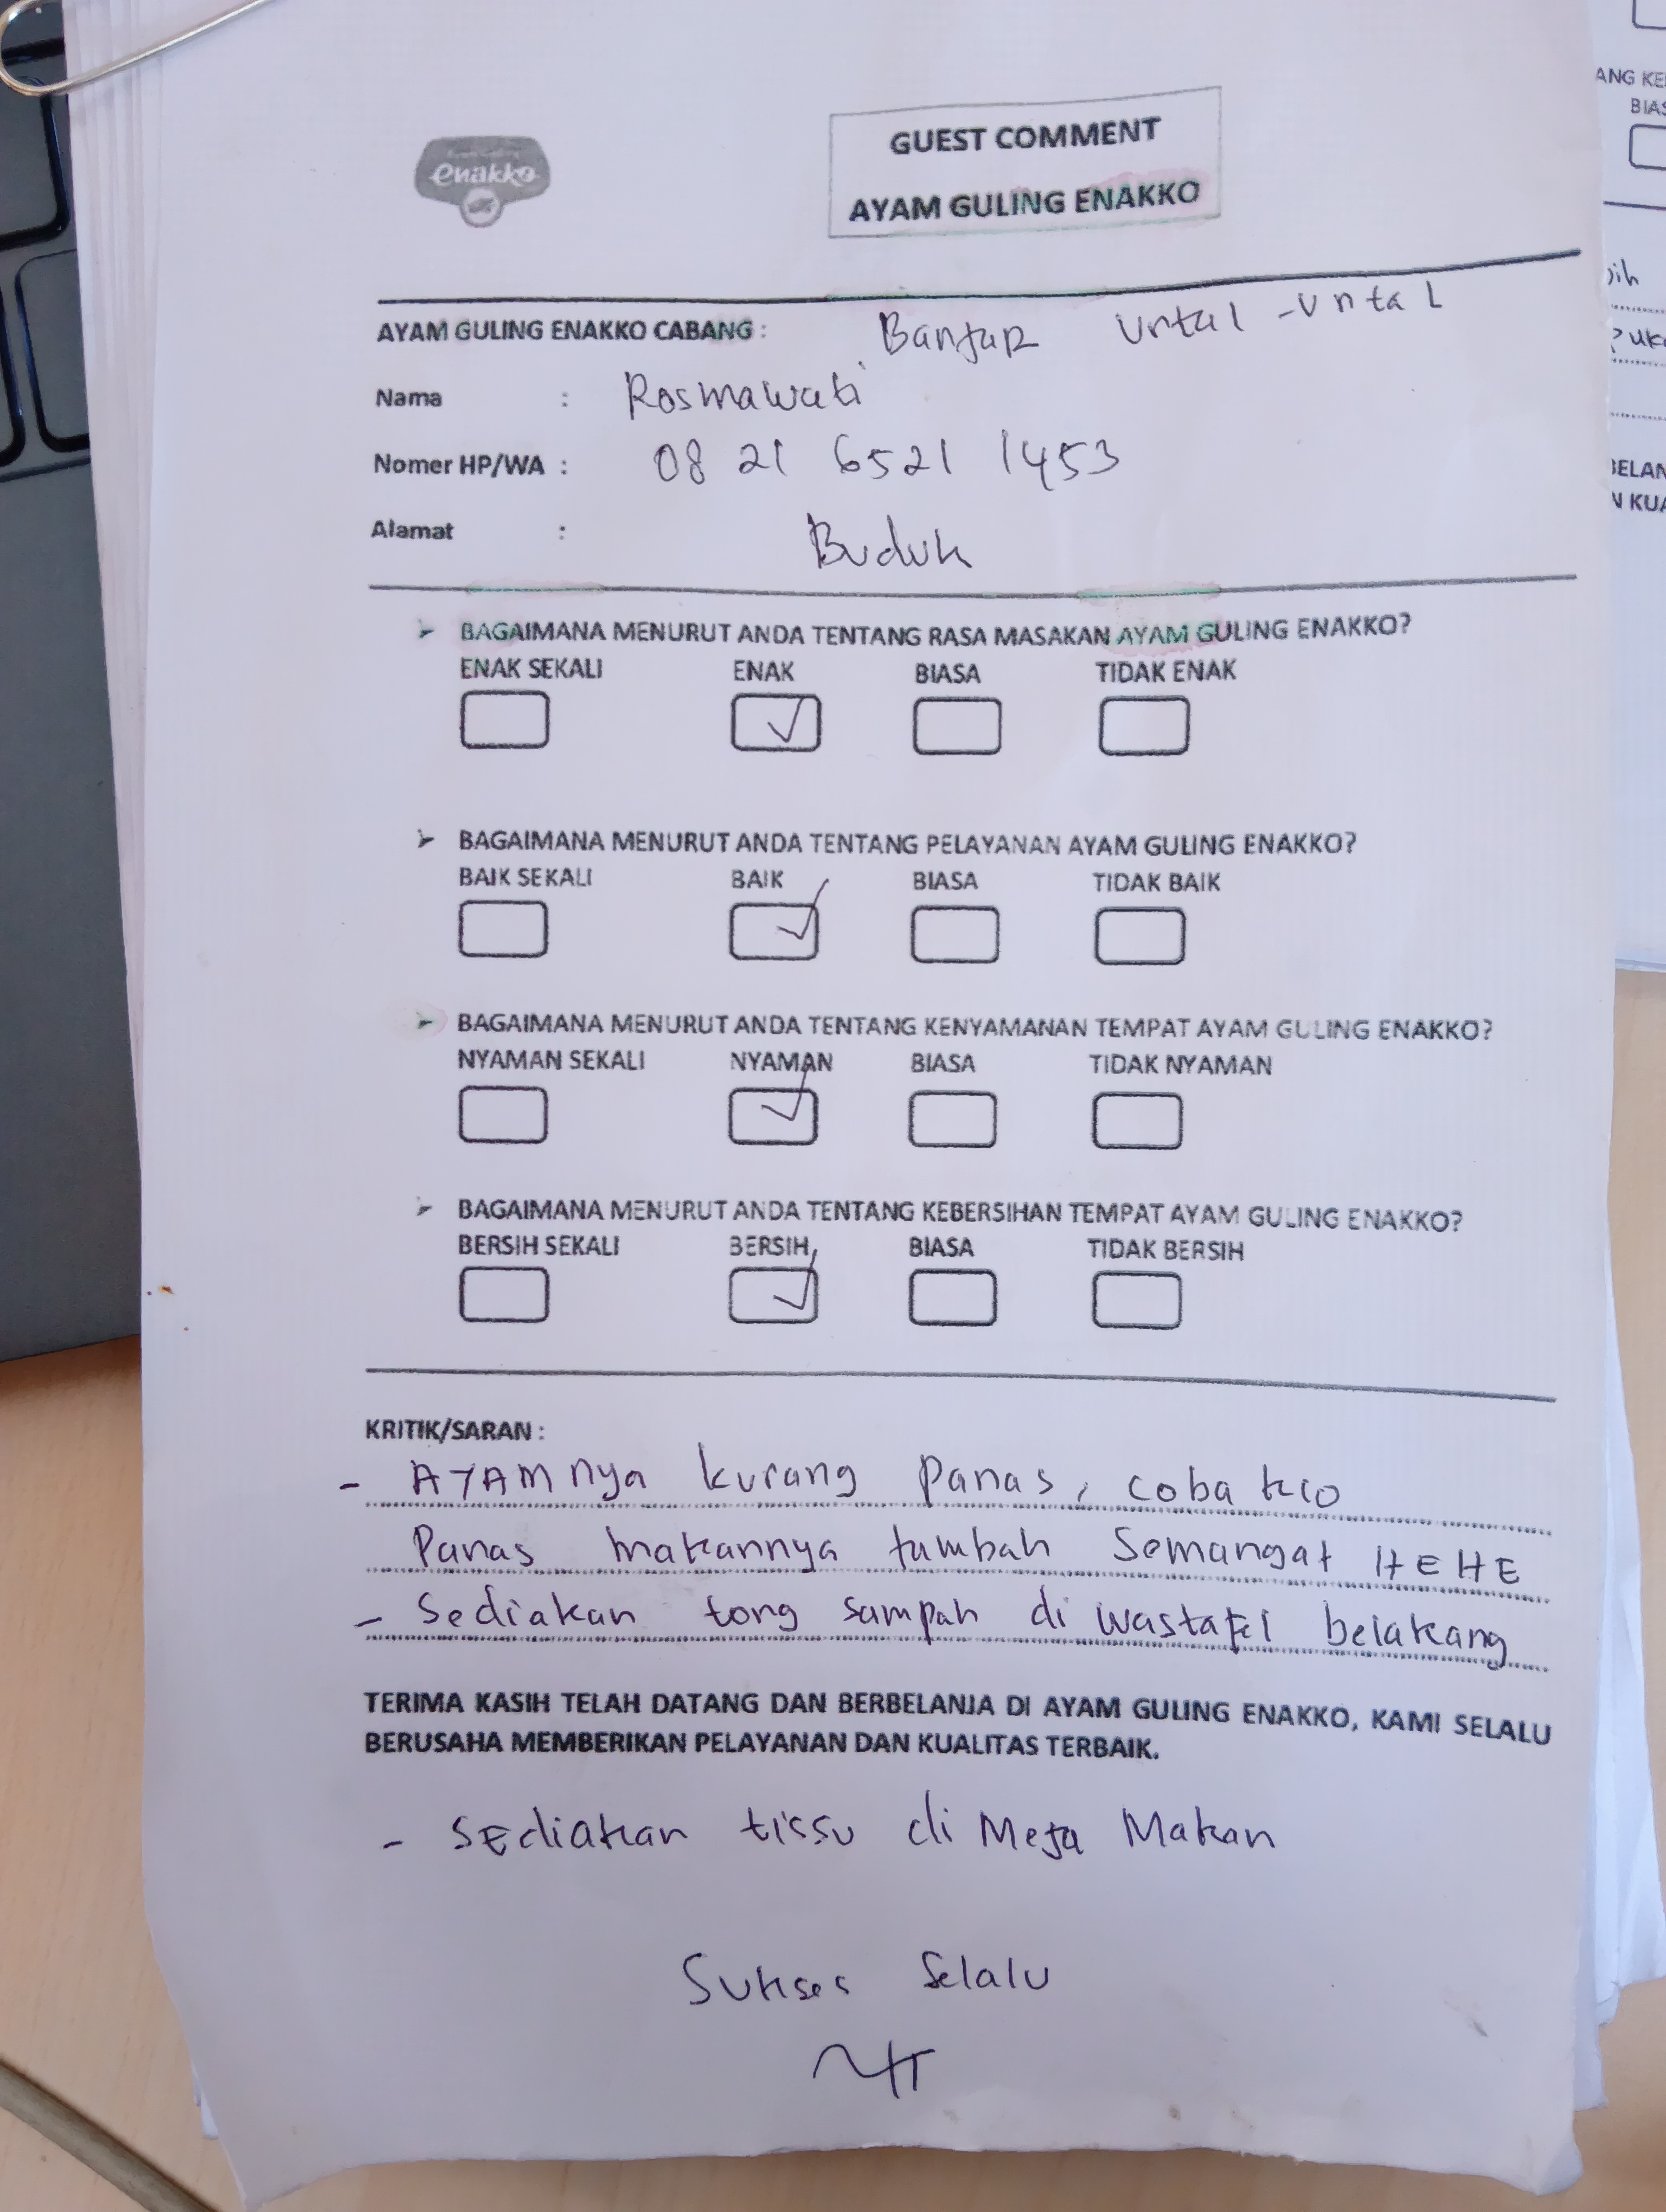 enakko
GUEST COMMENT
AYAM GULING ENAKKO
AYAM GULING ENAKKO CABANG : Banjar Untal-Untal
Nama : Rosmawati
Nomer HP/WA : 08 21 6521 1453
Alamat : Buduk
➢ BAGAIMANA MENURUT ANDA TENTANG RASA MASAKAN AYAM GULING ENAKKO?
ENAK SEKALI ENAK BIASA TIDAK ENAK
✓
➢ BAGAIMANA MENURUT ANDA TENTANG PELAYANAN AYAM GULING ENAKKO?
BAIK SEKALI BAIK BIASA TIDAK BAIK
✓
➢ BAGAIMANA MENURUT ANDA TENTANG KENYAMANAN TEMPAT AYAM GULING ENAKKO?
NYAMAN SEKALI NYAMAN BIASA TIDAK NYAMAN
✓
➢ BAGAIMANA MENURUT ANDA TENTANG KEBERSIHAN TEMPAT AYAM GULING ENAKKO?
BERSIH SEKALI BERSIH BIASA TIDAK BERSIH
✓
KRITIK/SARAN :
- AYAMnya kurang Panas, coba klo
Panas makannya tambah Semangat HEHE
- Sediakan tong sampah di wastafel belakang
TERIMA KASIH TELAH DATANG DAN BERBELANJA DI AYAM GULING ENAKKO, KAMI SELALU
BERUSAHA MEMBERIKAN PELAYANAN DAN KUALITAS TERBAIK.
- Sediakan tissu di Meja Makan
Sukses Selalu
ANG KE
BIAS
BELAN
N KUA